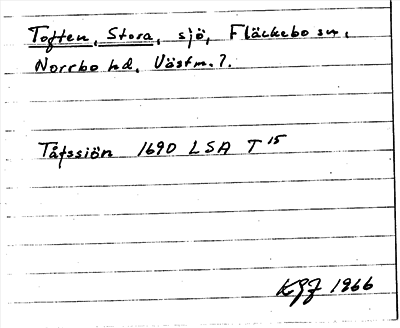 Toften, Stora, sjö, Fläckebo sn,
Norrbo hd, Västm. ?.
Tåfssiön 1690 LSA T 15
KGF 1966